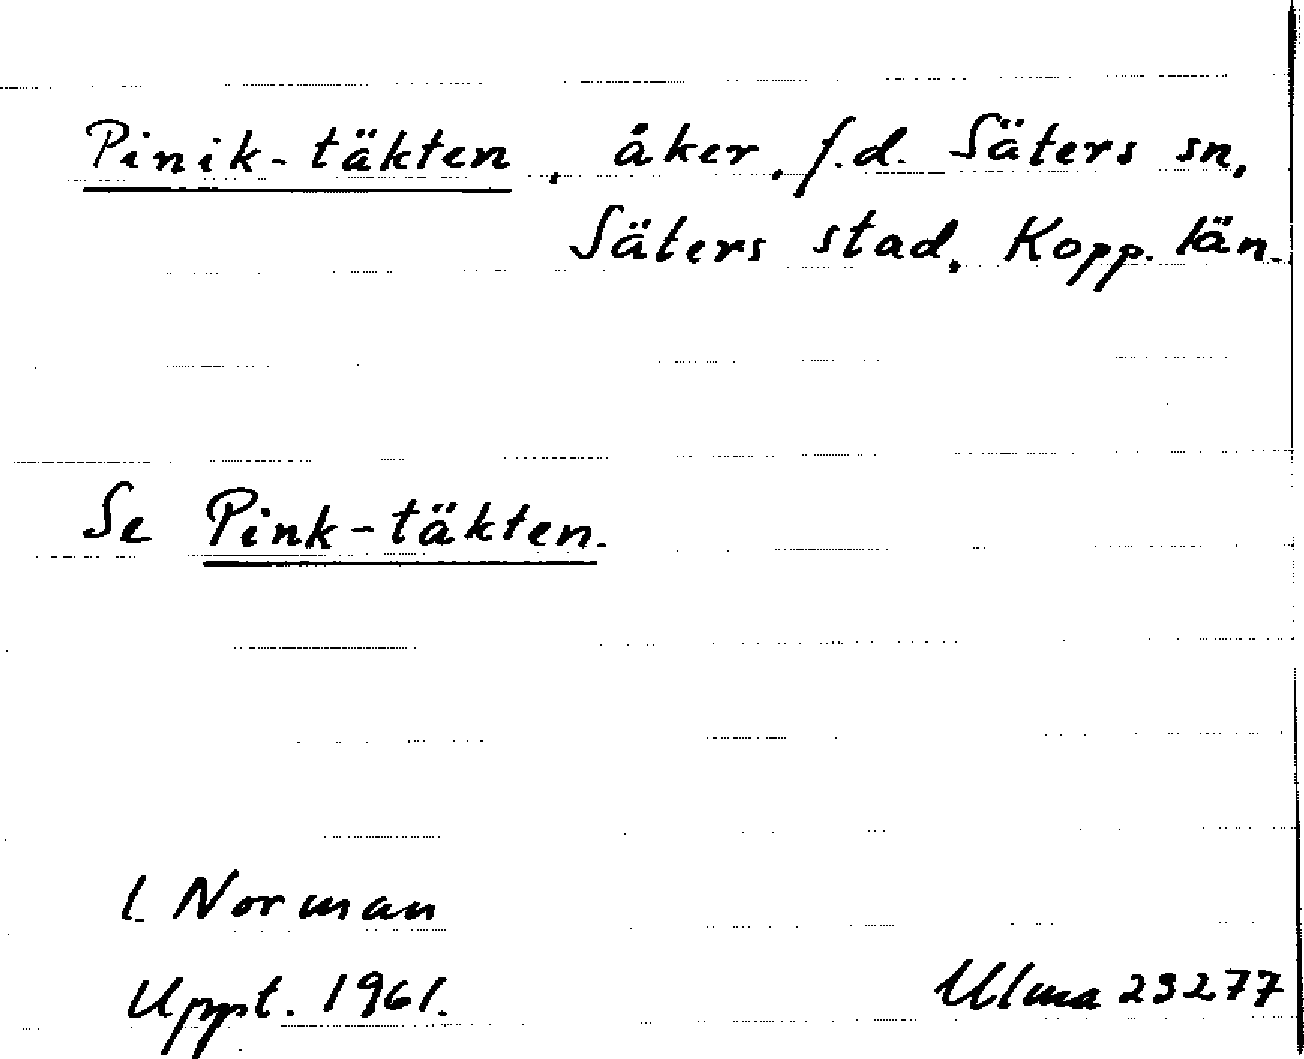 Pinik-täkten, åker, f.d. Säters sn,
Säters stad, Kopp. län.
Se Pink-täkten.
L. Norman
Uppt. 1961.
Ulma 23277